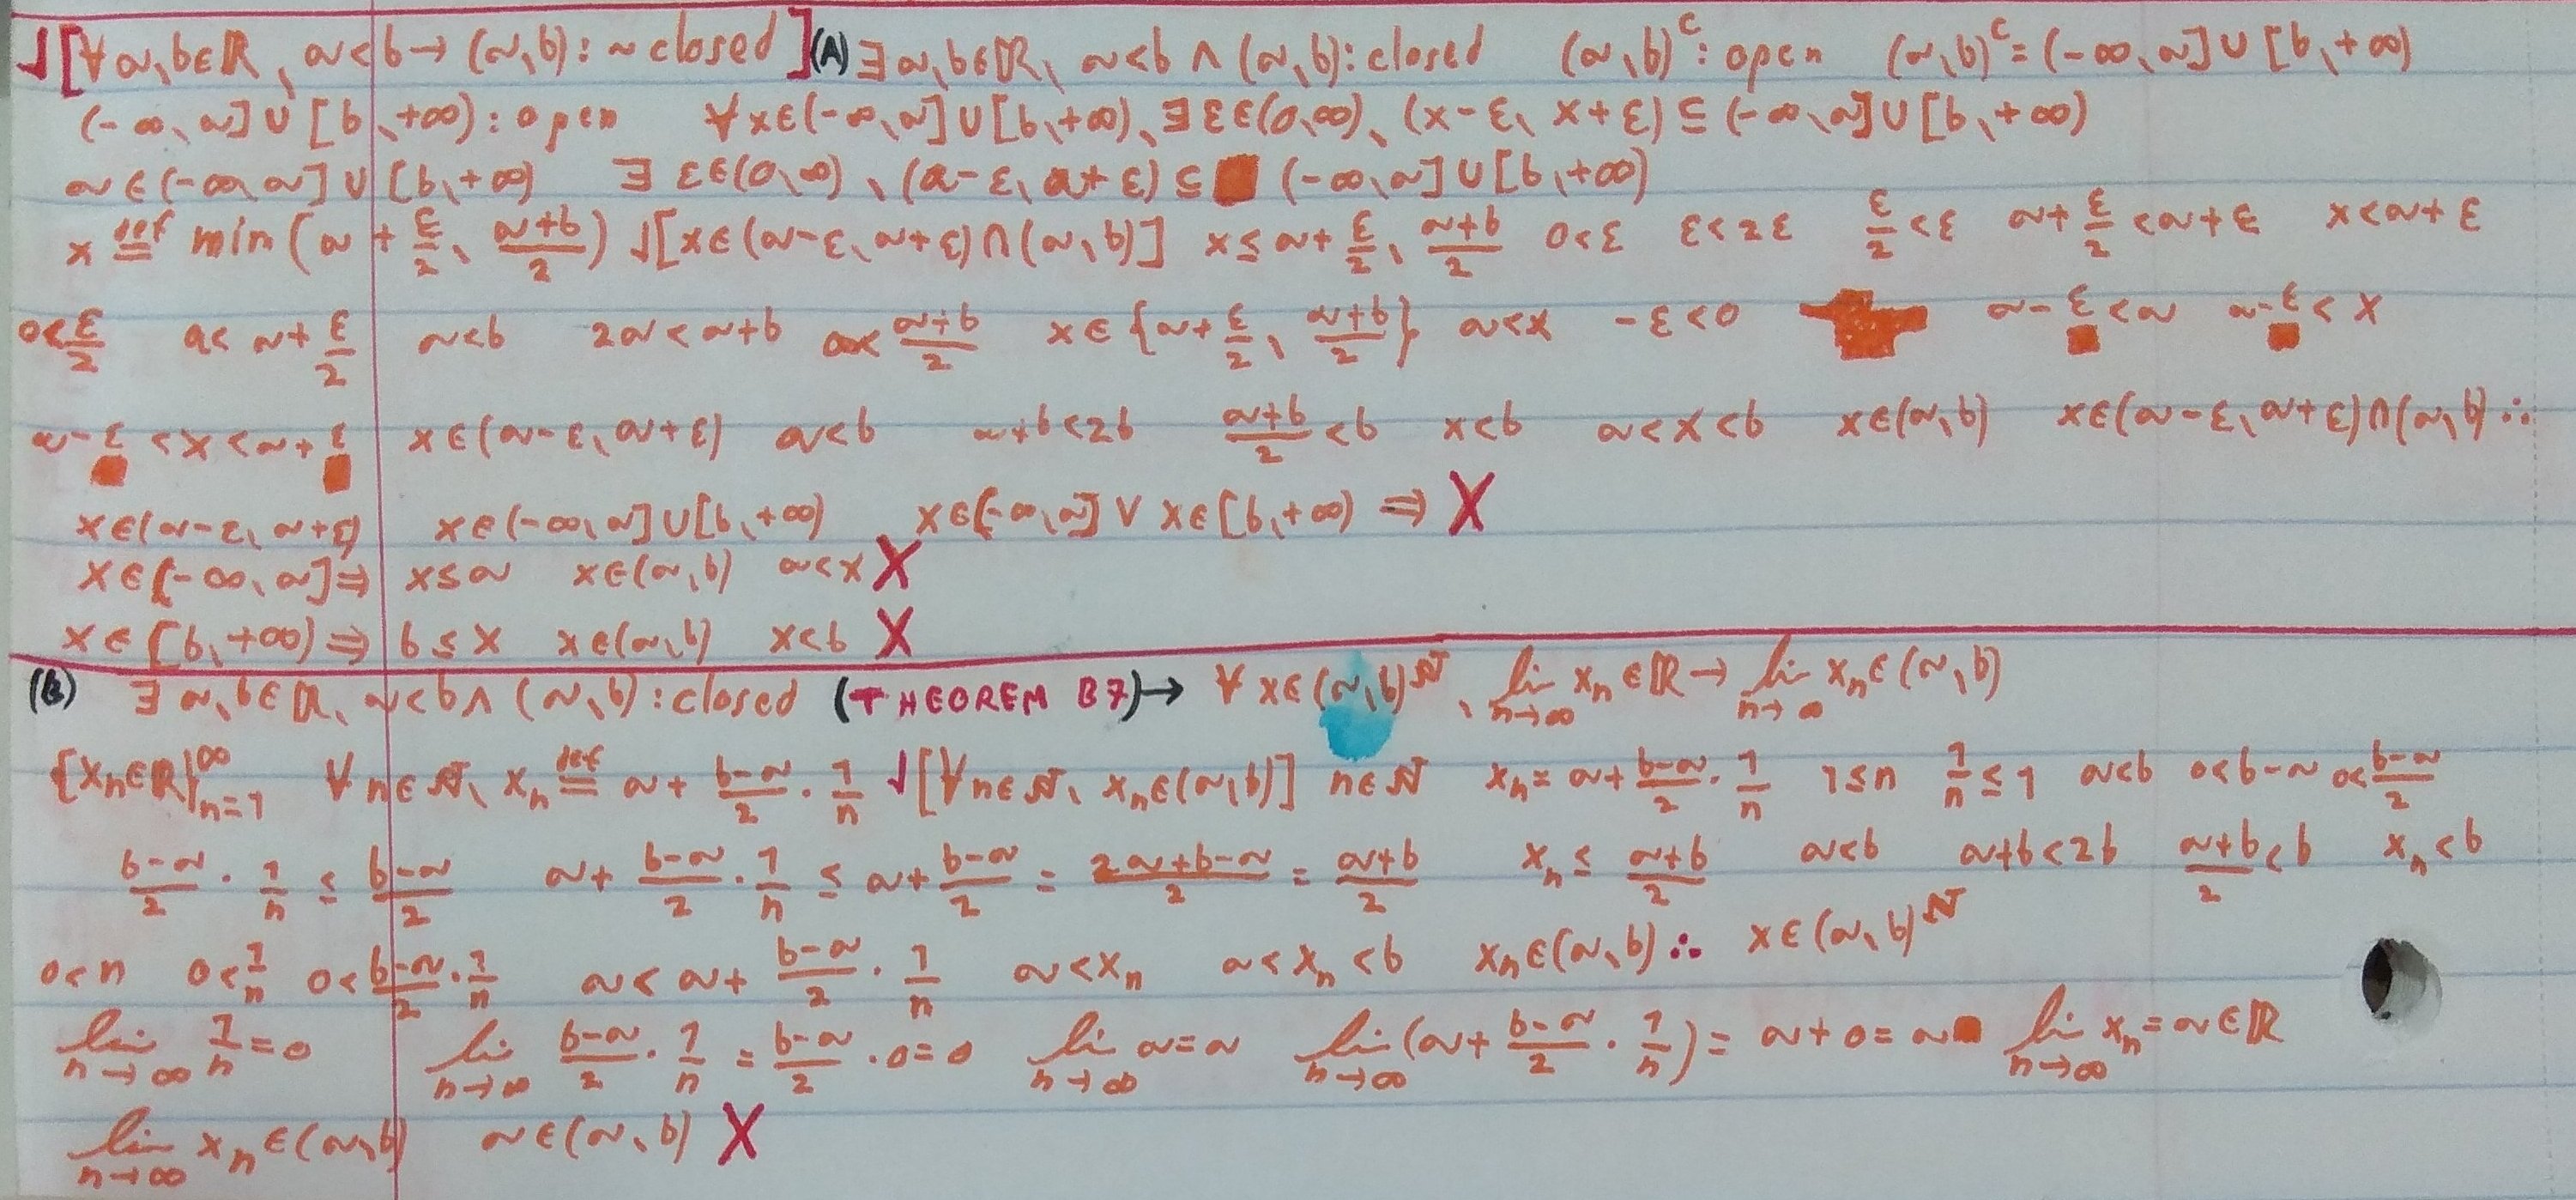 √[∀a,b∈ℝ, a<b→(a,b):~closed] (A) ∃a,b∈ℝ, a<b ∧ (a,b):closed (a,b)ᶜ: open (a,b)ᶜ=(-∞,a]∪[b,+∞)
(-∞,a]∪[b,+∞): open ∀x∈(-∞,a]∪[b,+∞), ∃ε∈(0,∞), (x-ε, x+ε)⊆(-∞,a]∪[b,+∞)
a∈(-∞,a]∪[b,+∞) ∃ε∈(0,∞), (a-ε, a+ε)⊆(-∞,a]∪[b,+∞)
x ≝ min(a+ε/2, (a+b)/2) √[x∈(a-ε,a+ε)∩(a,b)] x≤a+ε/2, (a+b)/2 0<ε ε<2ε ε/2<ε a+ε/2<a+ε x<a+ε
0<ε/2 a<a+ε/2 a<b 2a<a+b a<(a+b)/2 x∈{a+ε/2, (a+b)/2} a<x -ε<0 a-ε<a a-ε<x
a-ε<x<a+ε x∈(a-ε,a+ε) a<b a+b<2b (a+b)/2<b x<b a<x<b x∈(a,b) x∈(a-ε,a+ε)∩(a,b) ∴
x∈(a-ε,a+ε) x∈(-∞,a]∪[b,+∞) x∈(-∞,a] ∨ x∈[b,+∞) ⇒ X
x∈(-∞,a]⇒ x≤a x∈(a,b) a<x X
x∈[b,+∞)⇒ b≤x x∈(a,b) x<b X
(B) ∃a,b∈ℝ, a<b∧(a,b):closed (THEOREM B7)→ ∀x∈(a,b)^ℕ, lim n→∞ xₙ∈ℝ→ lim n→∞ xₙ∈(a,b)
{xₙ∈ℝ}_{n=1}^∞ ∀n∈ℕ, xₙ ≝ a+(b-a)/2·1/n √[∀n∈ℕ, xₙ∈(a,b)] n∈ℕ xₙ=a+(b-a)/2·1/n 1≤n 1/n≤1 a<b 0<b-a 0<(b-a)/2
(b-a)/2·1/n≤(b-a)/2 a+(b-a)/2·1/n≤a+(b-a)/2=(2a+b-a)/2=(a+b)/2 xₙ≤(a+b)/2 a<b a+b<2b (a+b)/2<b xₙ<b
0<n 0<1/n 0<(b-a)/2·1/n a<a+(b-a)/2·1/n a<xₙ a<xₙ<b xₙ∈(a,b) ∴ x∈(a,b)^ℕ
lim n→∞ 1/n=0 lim n→∞ (b-a)/2·1/n=(b-a)/2·0=0 lim n→∞ a=a lim n→∞ (a+(b-a)/2·1/n)=a+0=a lim n→∞ xₙ=a∈ℝ
lim n→∞ xₙ∈(a,b) a∈(a,b) X